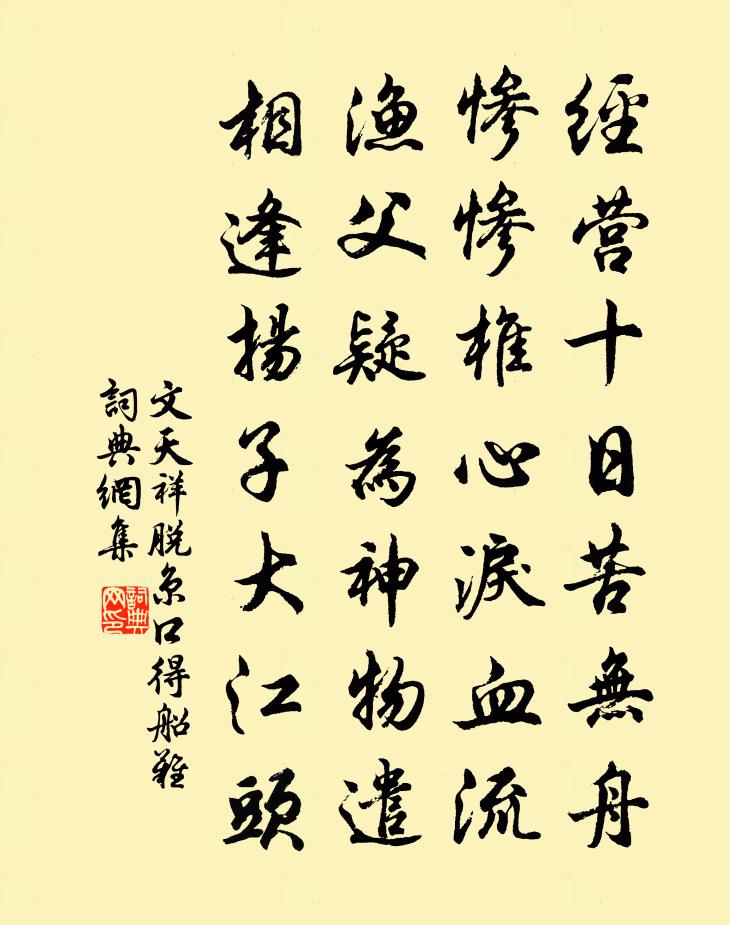 經营十日苦無舟
惨惨椎心淚血流
漁父疑為神物遣
相逢揚子大江頭
文天祥脱京口得船難
詞典網集
詞典网印